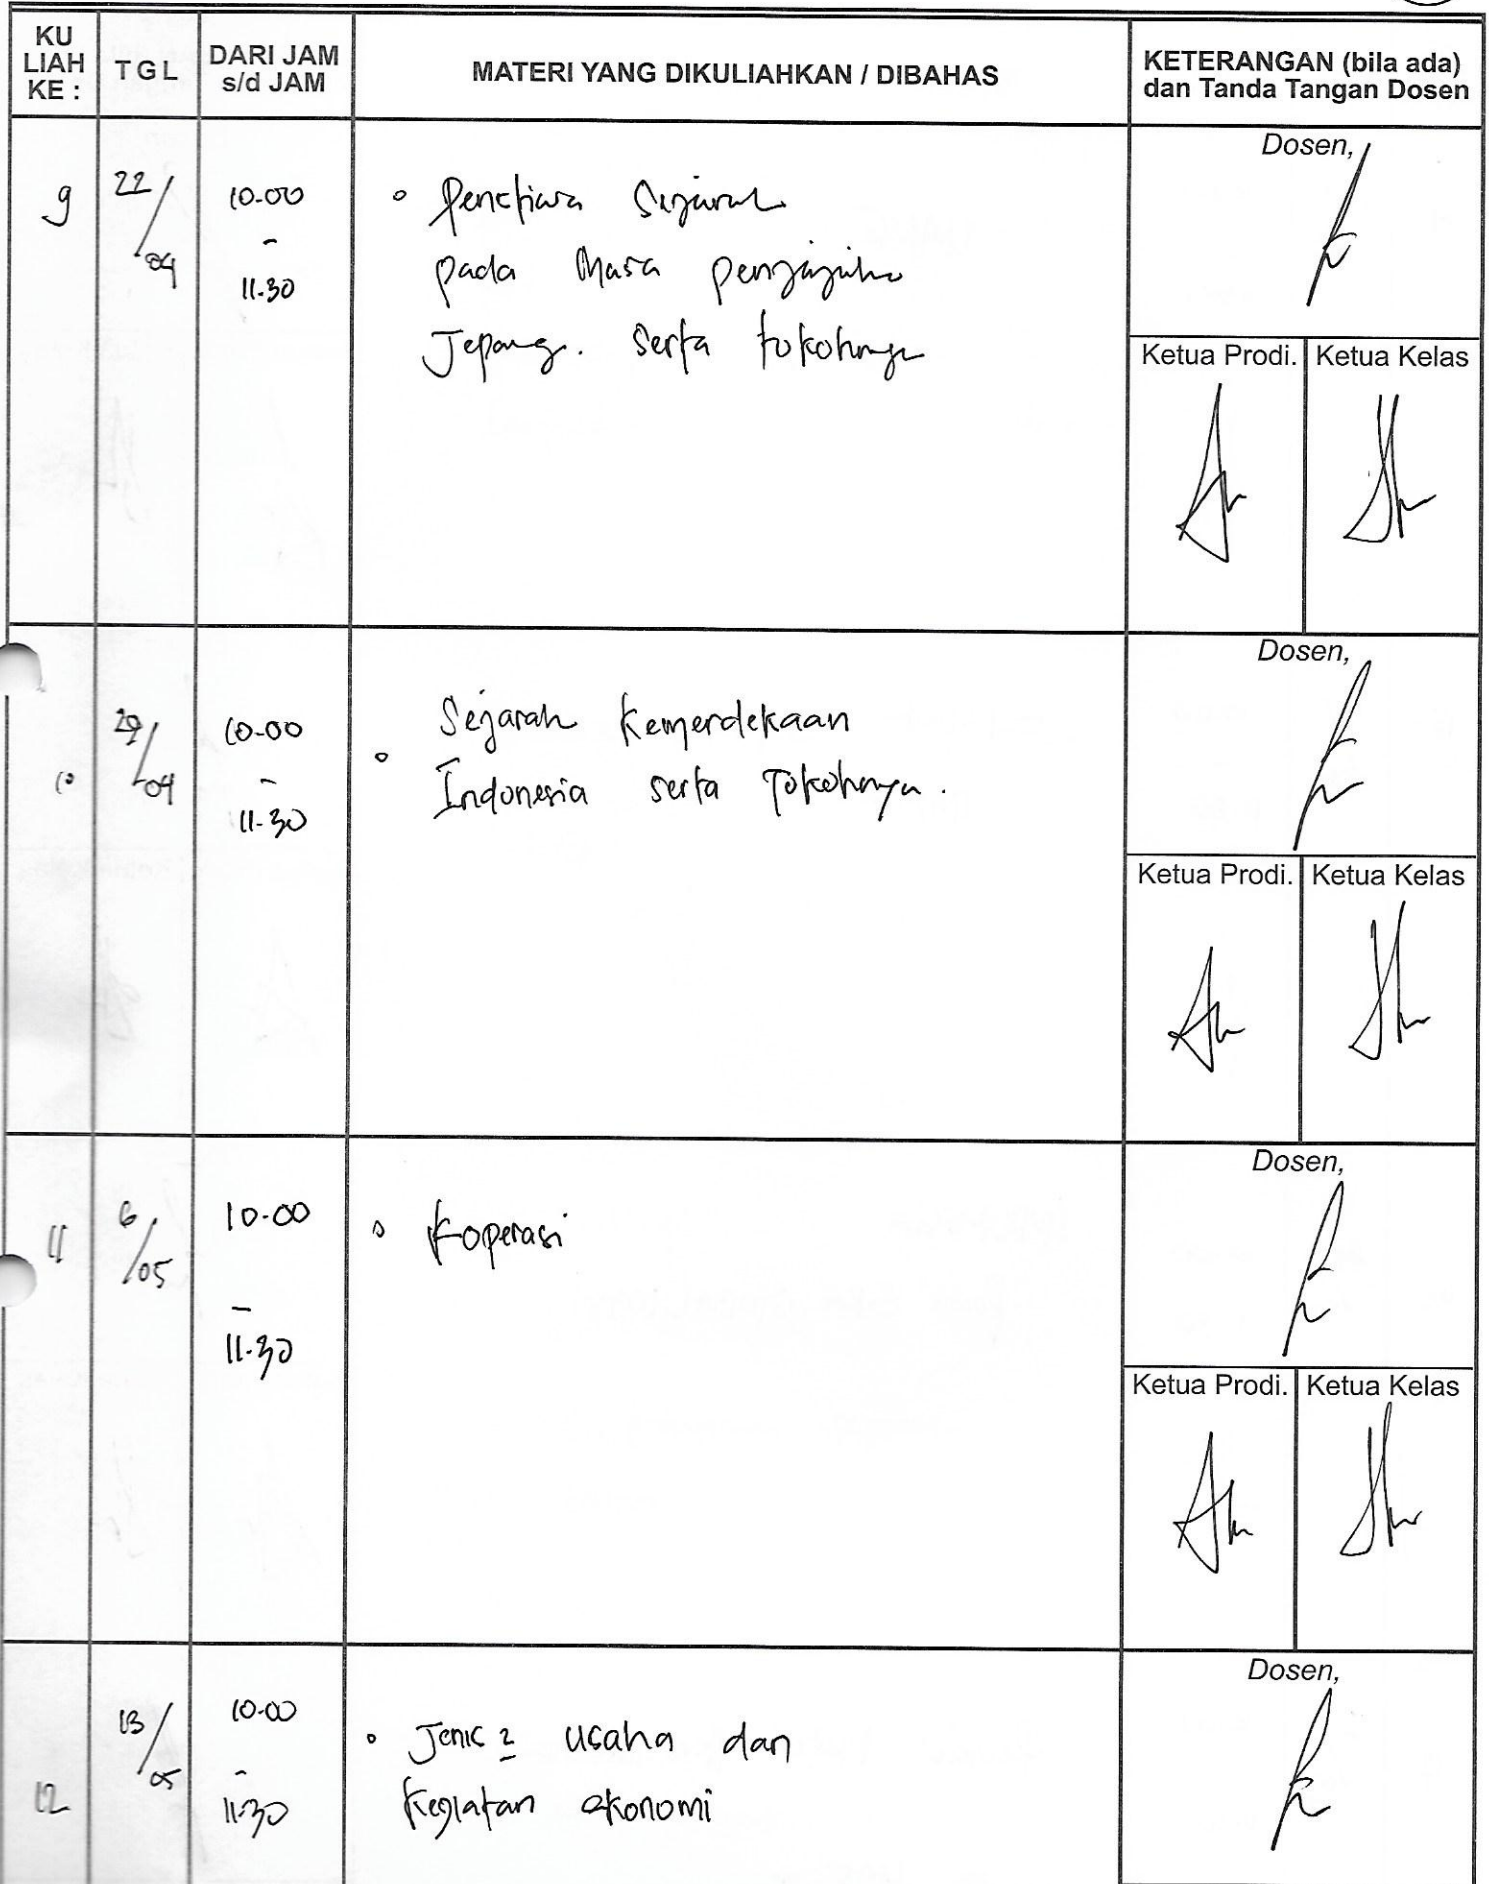 KU LIAH KE :
TGL
DARI JAM s/d JAM
MATERI YANG DIKULIAHKAN / DIBAHAS
KETERANGAN (bila ada) dan Tanda Tangan Dosen
9
22/04
10.00
-
11.30
Sejarah
pada Masa
Jepang. serta tokohnya
Dosen,
Ketua Prodi.
Ketua Kelas
10
29/04
10.00
-
11.30
Sejarah Kemerdekaan
Indonesia serta Tokohnya.
Dosen,
Ketua Prodi.
Ketua Kelas
11
6/05
10.00
-
11.30
Koperasi
Dosen,
Ketua Prodi.
Ketua Kelas
12
13/05
10.00
-
11.30
Jenis 2 usaha dan
Kegiatan ekonomi
Dosen,